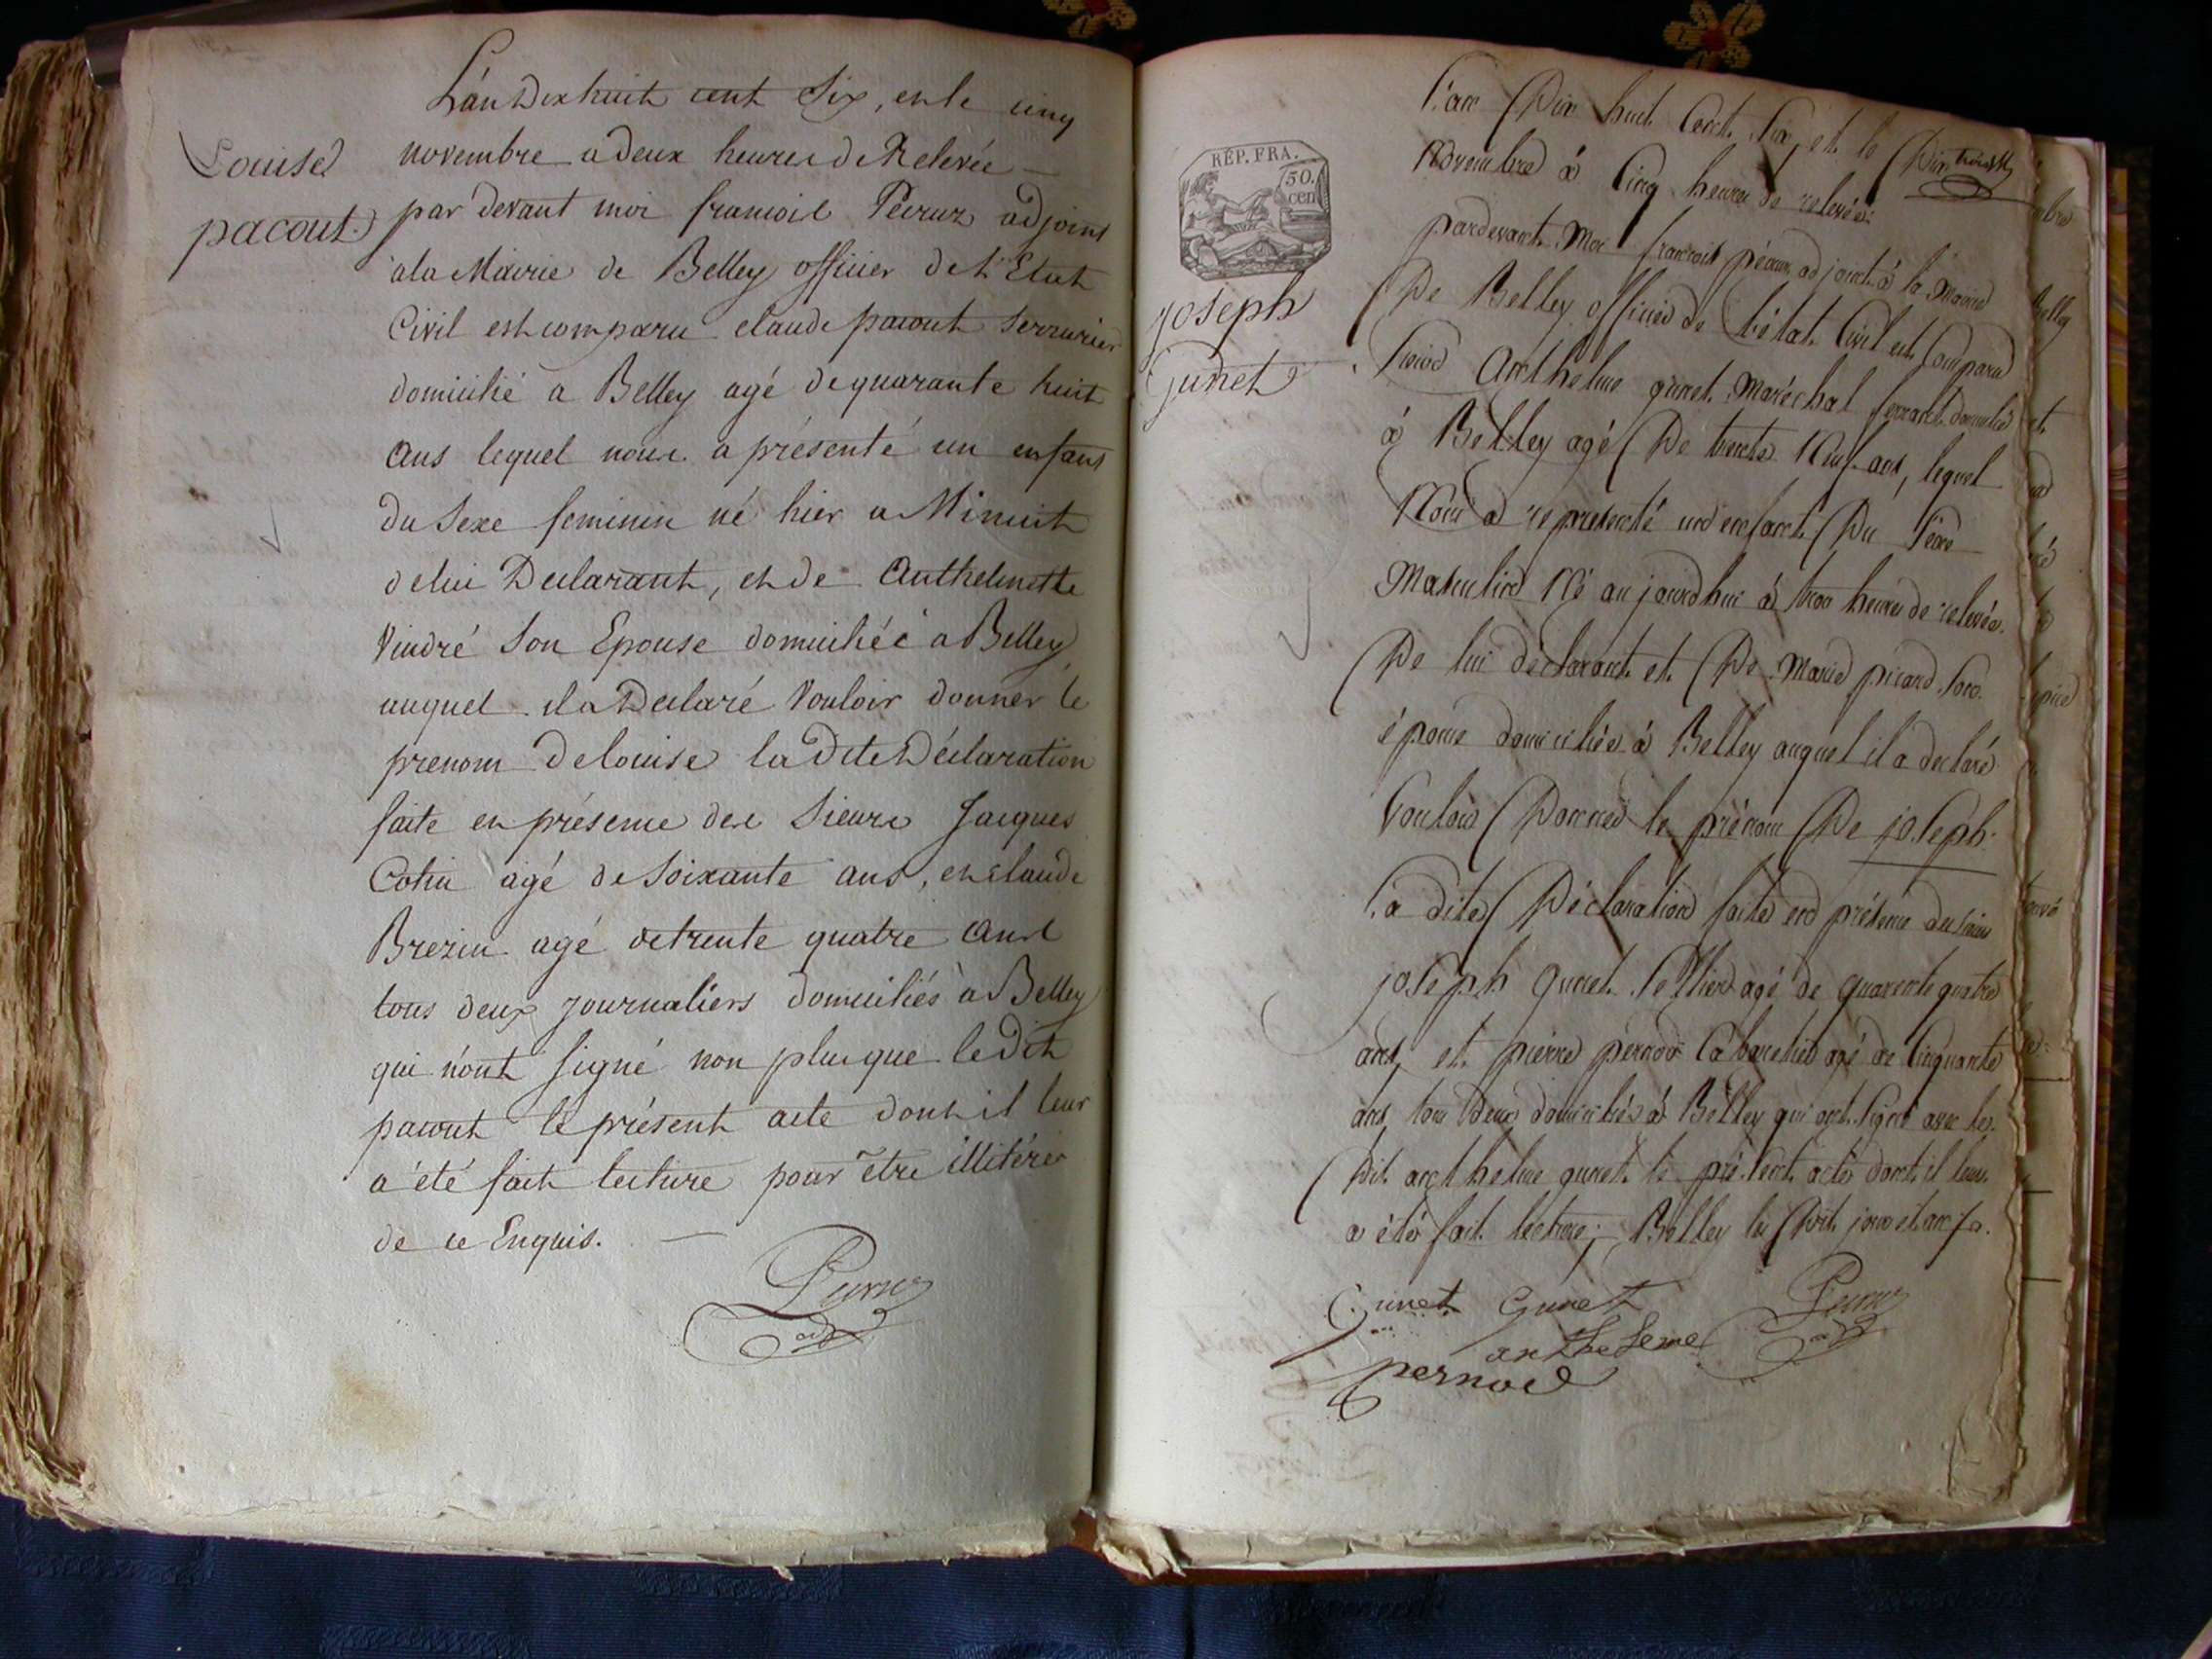 Louise
pacout.
L'an Dix huit cent Six, et le cinq
novembre a deux heures de Relevée
par devant moi francois Péruz adjoint
a la Mairie de Belley officier de l'Etat
Civil est comparu claude pacout Serrurier
domicilié a Belley agé de quarante huit
ans lequel nous a présenté un enfant
du Sexe feminin né hier a Minuit
de lui Declarant, et de Anthelmette
Vindré Son Epouse domiciliée a Belley
auquel il a Declaré Vouloir donner le
prenom de Louise la dite Déclaration
faite en présence des Sieurs Jacques
Cotin agé de Soixante ans, et claude
Brezin agé de trente quatre ans
tous deux journaliers domiciliés à Belley
qui n'ont Signé non plus que le dit
pacout le présent acte dont il leur
a été fait lecture pour être illitérés
de ce Enquis.
RÉP. FRA.
50.
cen
joseph
Gunet
L'an Dix huit Cent Six, et le Dix
Novembre à Cinq heures de relevée
pardevant Moi francois péruz adjoint à la Mairie
De Belley officier de l'état Civil est Comparu
Sieur Anthelme gunet Maréchal ferrant domicilié
à Belley agé De trente Neuf ans, lequel
Nous a représenté un enfant Du Sexe
Masculin Né aujourdhui à trois heures de relevée
De lui déclarant et De Marie picard Son
épouse domiciliée à Belley auquel il a declaré
Vouloir Donner le prénom De joseph.
La dite Déclaration faite en présence des Sieurs
joseph gunet Sellier agé de quarente quatre
ans, et pierre pernod Cabaretier agé de Cinquante
ans, tous Deux domiciliés à Belley qui ont Signé avec le
Dit anthelme gunet le présent acte dont il leur
a été fait lecture; Belley les Dit jour et an
Gunet Gunet
anthelme
pernod